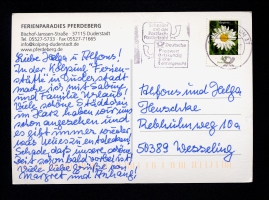 FERIENPARADIES PFERDEBERG
Bischof-Janssen-Straße · 37115 Duderstadt
Tel. 05527-5733 · Fax 05527-71665
info@kolping-duderstadt.de
www.pferdeberg.de
Liebe Helga u. Alfons!
In der Kolping "Ferien-
stätte in Duderstadt
mache ich mit Sabine
und Familie Urlaub!
Viele schöne Städtchen
im Harz haben wir uns
schon angesehen und
es gibt immer wieder
was Neues zu entdecken.
Schade, daß unsere schöne
Zeit schon bald vorbei ist.
Viele liebe Grüße von
Margret und Anhang!
Deutsche
Alfons und Helga
Rebhuhnweg 10a
50389 Wesseling